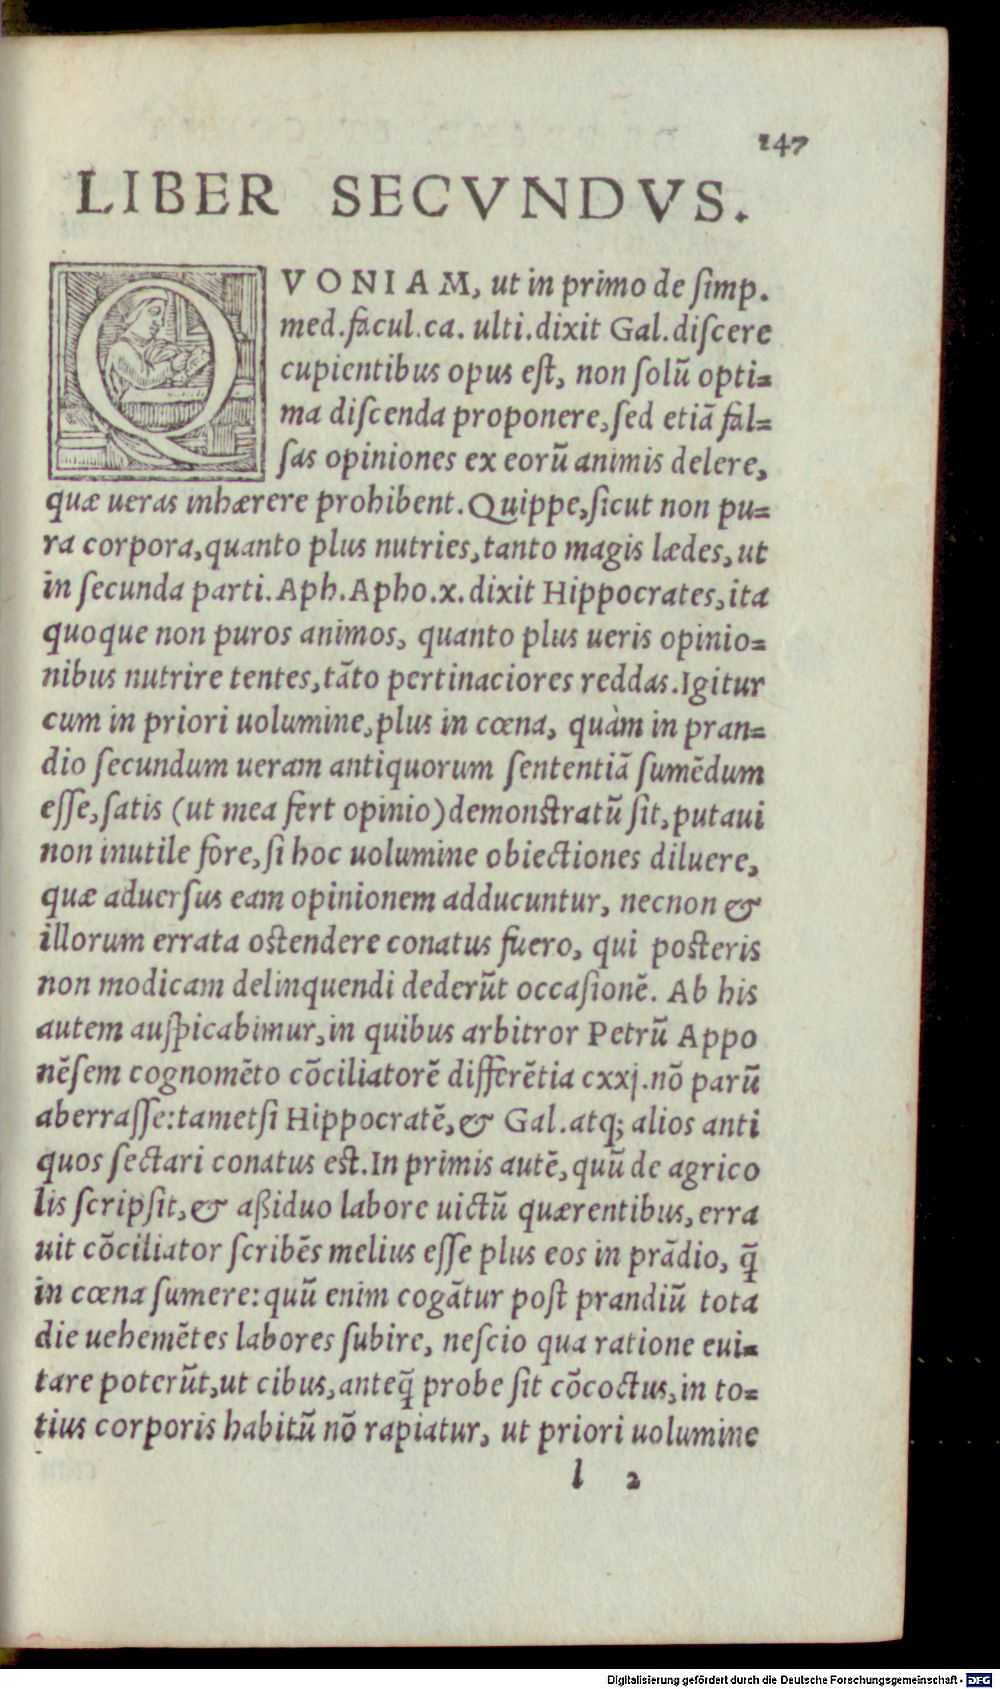 147
LIBER SECVNDVS.
QVONIAM, ut in primo de simp.
med.facul.ca. ulti.dixit Gal.discere
cupientibus opus est, non solū opti=
ma discenda proponere, sed etiā fal=
sas opiniones ex eorū animis delere,
quæ ueras inhærere prohibent. Quippe, sicut non pu=
ra corpora, quanto plus nutries, tanto magis lædes, ut
in secunda parti. Aph. Apho.x. dixit Hippocrates, ita
quoque non puros animos, quanto plus ueris opinio=
nibus nutrire tentes, tāto pertinaciores reddas. Igitur
cum in priori uolumine, plus in cœna, quàm in pran=
dio secundum ueram antiquorum sententiā sumēdum
esse, satis (ut mea fert opinio) demonstratū sit, putaui
non inutile fore, si hoc uolumine obiectiones diluere,
quæ aduersus eam opinionem adducuntur, necnon &
illorum errata ostendere conatus fuero, qui posteris
non modicam delinquendi dederūt occasionē. Ab his
autem auspicabimur, in quibus arbitror Petrū Appo
nēsem cognomēto cōciliatorē differētia cxxj. nō parū
aberrasse: tametsi Hippocratē, & Gal. atq; alios anti
quos sectari conatus est. In primis autē, quū de agrico
lis scripsit, & aßiduo labore uictū quærentibus, erra
uit cōciliator scribēs melius esse plus eos in prādio, q̄
in cœna sumere: quū enim cogātur post prandiū tota
die uehemētes labores subire, nescio qua ratione eui=
tare poterūt, ut cibus, anteq̄ probe sit cōcoctus, in to=
tius corporis habitū nō rapiatur, ut priori uolumine
l 2
Digitalisierung gefördert durch die Deutsche Forschungsgemeinschaft - DFG